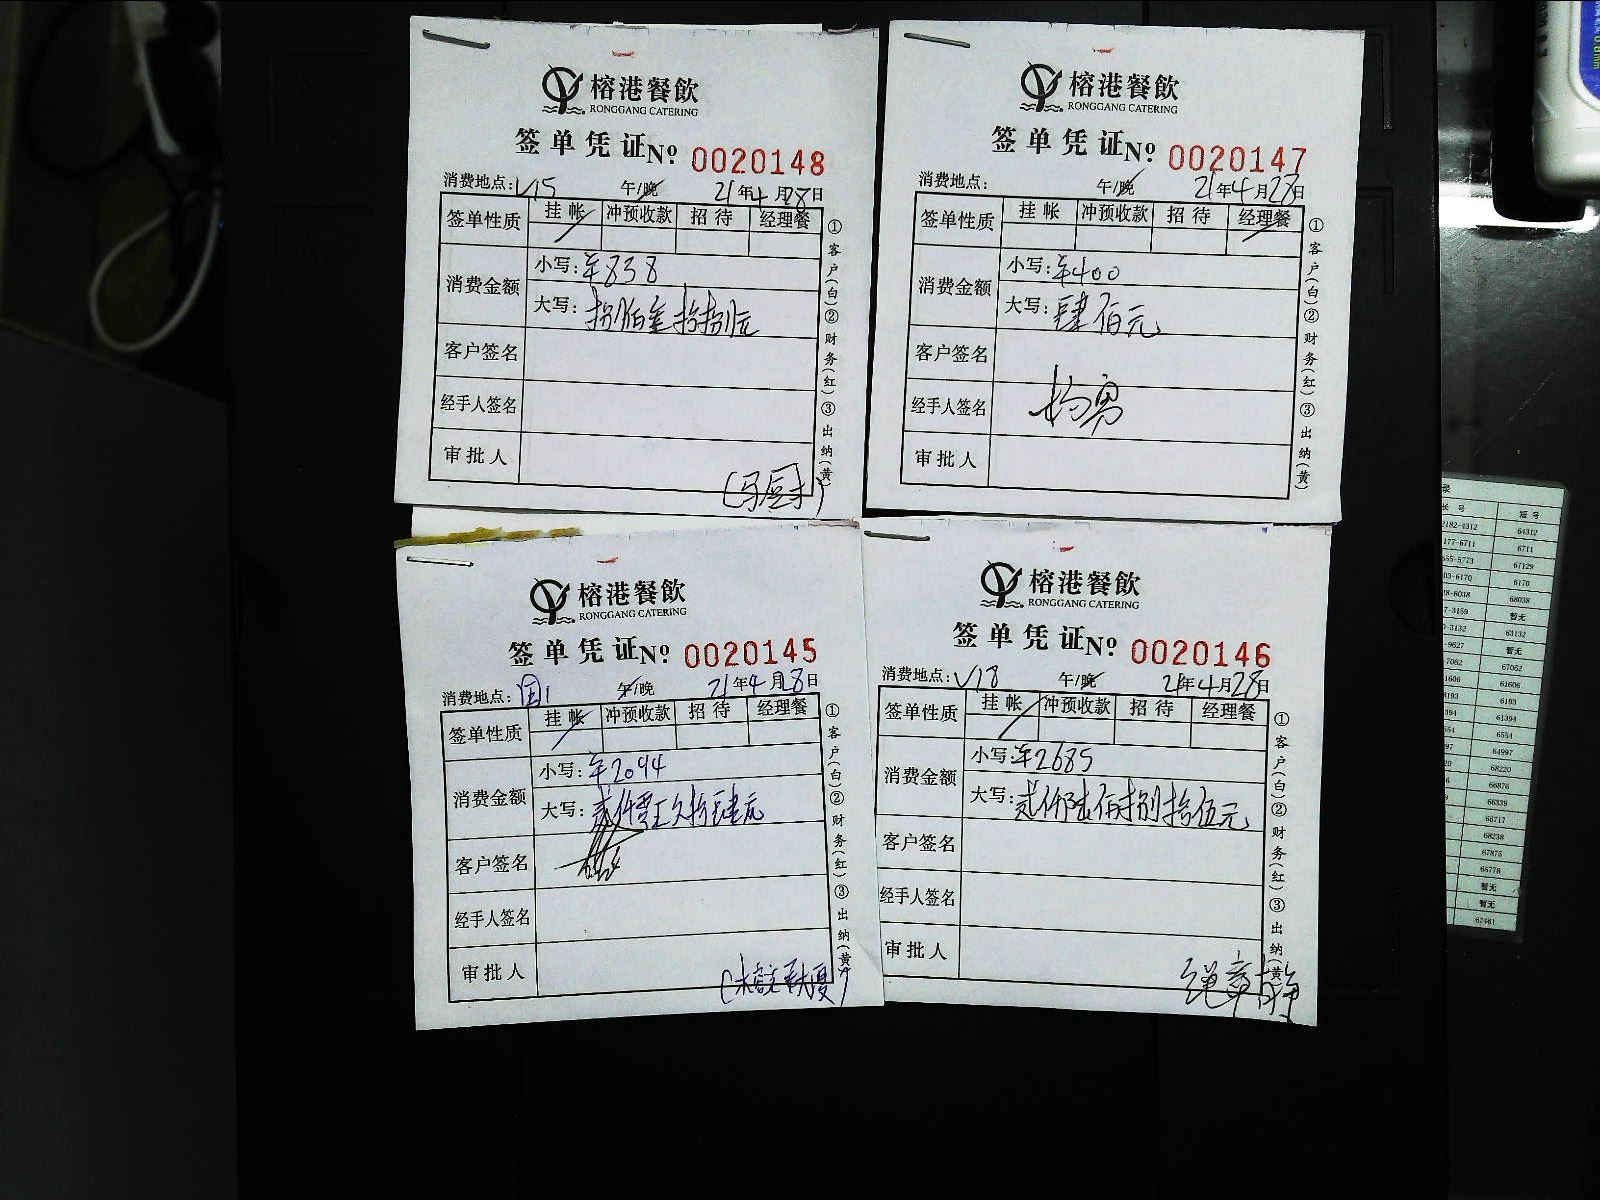 榕港餐飲
RONGGANG CATERING
签单凭证 Nº 0020148
消费地点:V15 午/晚 21年4月28日
签单性质 挂帐 冲预收款 招待 经理餐
消费金额 小写:¥838
大写:捌佰叁拾捌元
客户签名
经手人签名
审批人
①客户(白)②财务(红)③出纳(黄)
榕港餐飲
RONGGANG CATERING
签单凭证 Nº 0020147
消费地点: 午/晚 21年4月28日
签单性质 挂帐 冲预收款 招待 经理餐
消费金额 小写:¥400
大写:肆佰元
客户签名
经手人签名
审批人
①客户(白)②财务(红)③出纳(黄)
榕港餐飲
RONGGANG CATERING
签单凭证 Nº 0020145
消费地点: 午/晚 21年4月28日
签单性质 挂帐 冲预收款 招待 经理餐
消费金额 小写:¥2094
大写:贰仟零玖拾肆元
客户签名
经手人签名
审批人
①客户(白)②财务(红)③出纳(黄)
榕港餐飲
RONGGANG CATERING
签单凭证 Nº 0020146
消费地点:V18 午/晚 21年4月28日
签单性质 挂帐 冲预收款 招待 经理餐
消费金额 小写:¥2685
大写:贰仟陆佰捌拾伍元
客户签名
经手人签名
审批人
①客户(白)②财务(红)③出纳(黄)
录
长号 短号
2182-4312 64312
177-6711 6711
655-5773 67129
03-6170 6170
28-6038 68038
7-3159 暂无
0-3132 63132
-9627 暂无
7062 67062
1606 61606
8193 6193
1394 61394
554 6554
997 64997
68220
66876
66339
68717
68238
67875
65778
暂无
暂无
62461